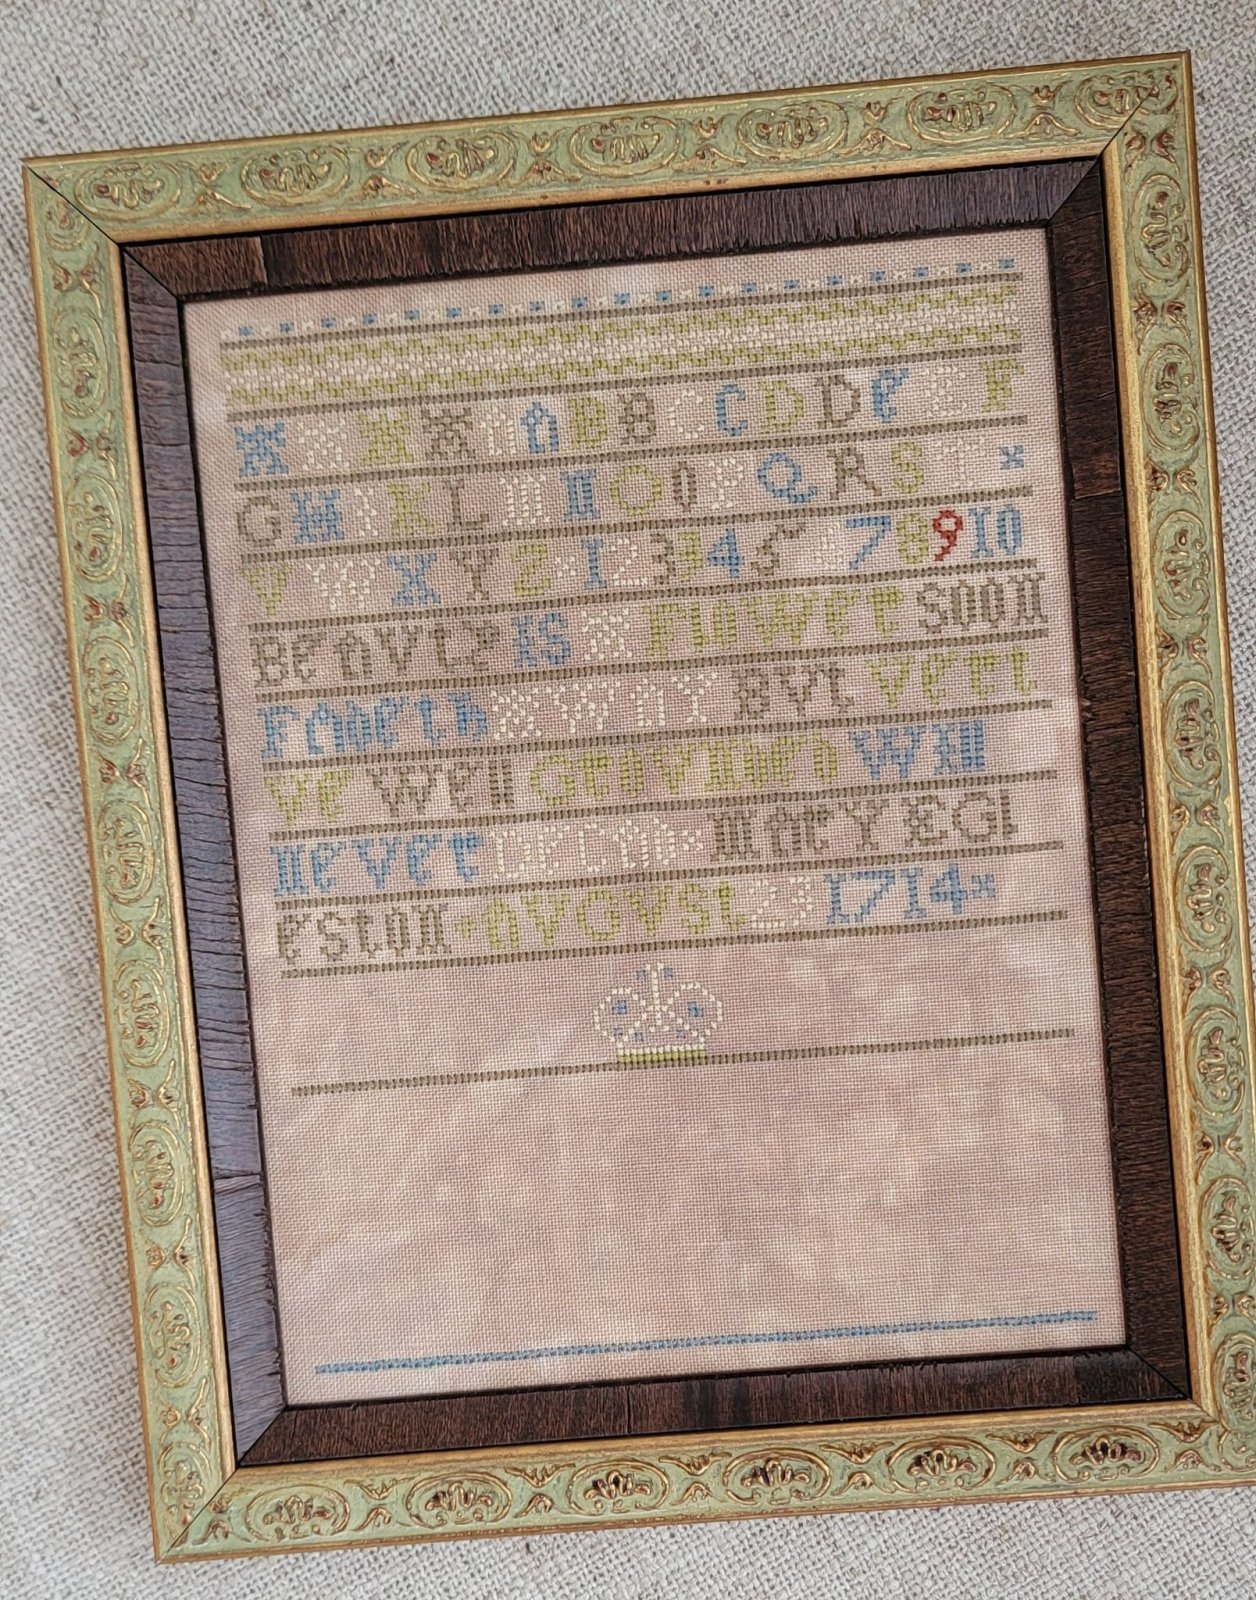 A A A A A A B B C C D D E E F
G H I K L M N O O P Q R S T
V W X Y Z 1 2 3 3 4 5 6 7 8 9 10
BeAVty IS A FloWer SOON
FAdeth AWAY BVt Vert
Ve Well GroVnded WIll
NeVer DECAy MArY EGl
eStON AVGVSt 23 1714